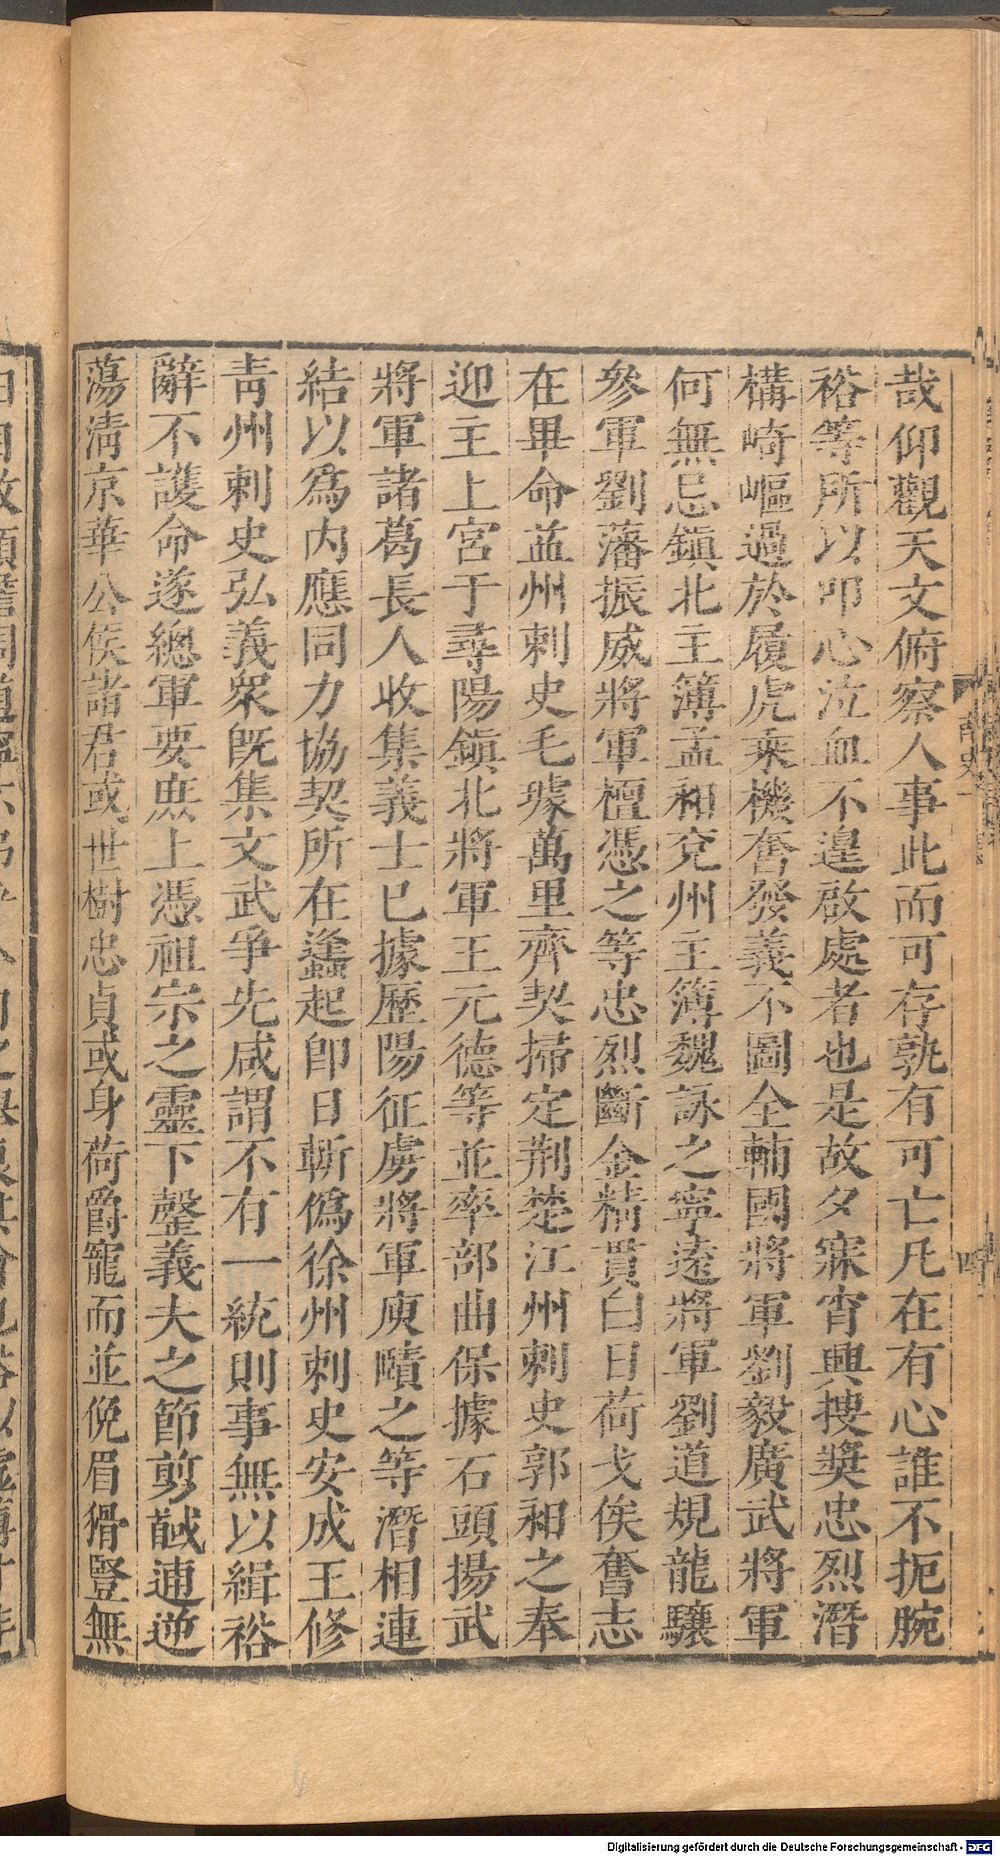 哉仰觀天文俯察人事此而可存孰有可亡凡在有心誰不扼腕
裕等所以叩心泣血不遑啟處者也是故夕寐宵興摟獎忠烈潛
構崎嶇過於履虎乘機奮發義不圖全輔國將軍劉毅廣武將軍
何無忌鎮北主簿孟和兗州主簿魏詠之寧遠將軍劉道規龍驤
參軍劉藩振威將軍檀憑之等忠烈斷金精貫白日荷戈俟奮志
在畢命益州刺史毛璩萬里齊契掃定荆楚江州刺史郭和之奉
迎主上宮于尋陽鎮北將軍王元德等並率部曲保據石頭揚武
將軍諸葛長人收集義士已據歷陽征虜將軍庾賾之等潛相連
結以為內應同力協契所在蠭起即日斬僞徐州刺史安成王修
青州刺史弘義眾既集文武爭先咸謂不有一統則事無以緝裕
辭不謢命遂總軍要庶上憑祖宗之靈下罄義夫之節剪馘逋逆
蕩清京華公侯諸君或世樹忠貞或身荷爵寵而並俛眉猾豎無
Digitalisierung gefördert durch die Deutsche Forschungsgemeinschaft - DFG